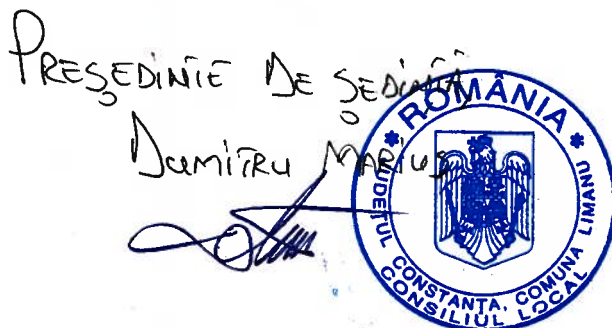 PREȘEDINTE DE ȘEDINȚĂ
DUMITRU MARIUS
* ROMÂNIA *
JUDEȚUL CONSTANȚA, COMUNA LIMANU
CONSILIUL LOCAL